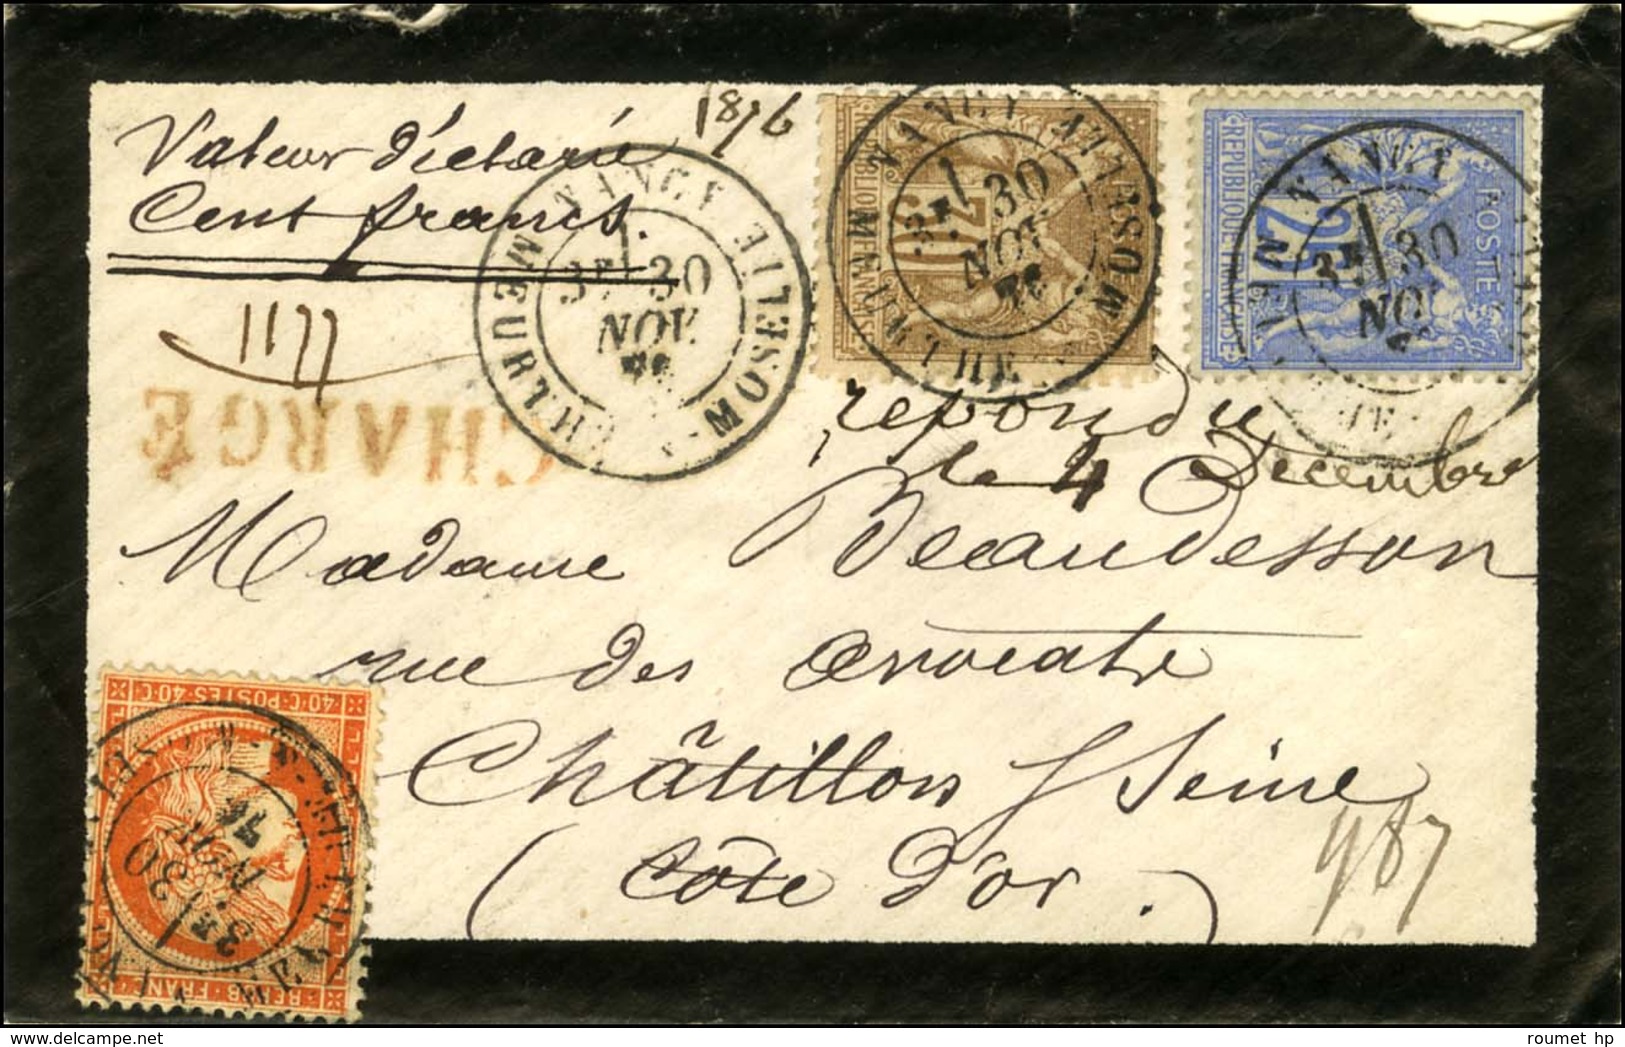 Valeur déclarée
Cent francs.
1876
1177
CHARGÉ
NANCY
MEURTHE-ET-MOSELLE
3E 30
NOV.
76
NANCY
MEURTHE-ET-MOSELLE
3E 30
NOV.
76
30
REPUBLIQUE FRANCAISE
NANCY
3E 30
NOV.
25
POSTE
REPUBLIQUE FRANCAISE
repondu
le 4 Decembre
Madame Beaudesson
rue des avocats
Châtillon s/ Seine
(Côte d'or.)
987
40·C·POSTES·40·C
REPUB·FRANC
3E
30
NOV.
76
roumet hp